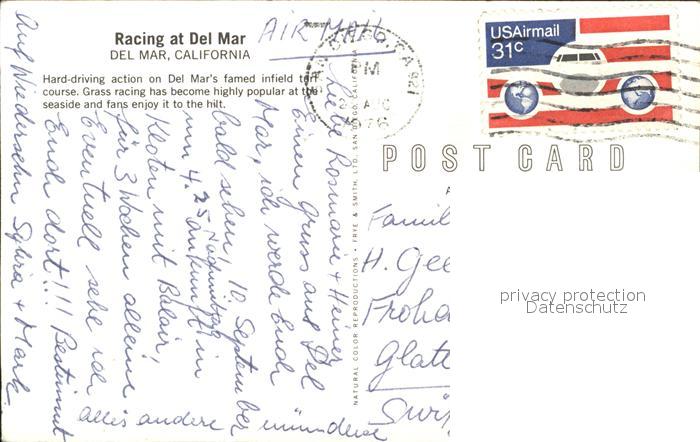 Racing at Del Mar
DEL MAR, CALIFORNIA
Hard-driving action on Del Mar's famed infield turf
course. Grass racing has become highly popular at the
seaside and fans enjoy it to the hilt.
AIR MAIL
USAirmail
31c
POST CARD
NATURAL COLOR REPRODUCTIONS • FRYE & SMITH, LTD. SAN DIEGO, CALIFORNIA
Liebe Rosmarie + Heiner
Einen Gruss aus Del
Mar, ich werde Euch
bald sehen, 10 September
um 4.25 Nachmittag
Ankunft in
Kloten mit Balair,
für 3 Wochen alleine
Eventuell sehe ich
Euch dort!!! Bestimmt
alles andere mündlich
Auf Wiedersehn Sylvia + Mark
Famil
H. Gee
Froha
Glatt
Swi
privacy protection
Datenschutz